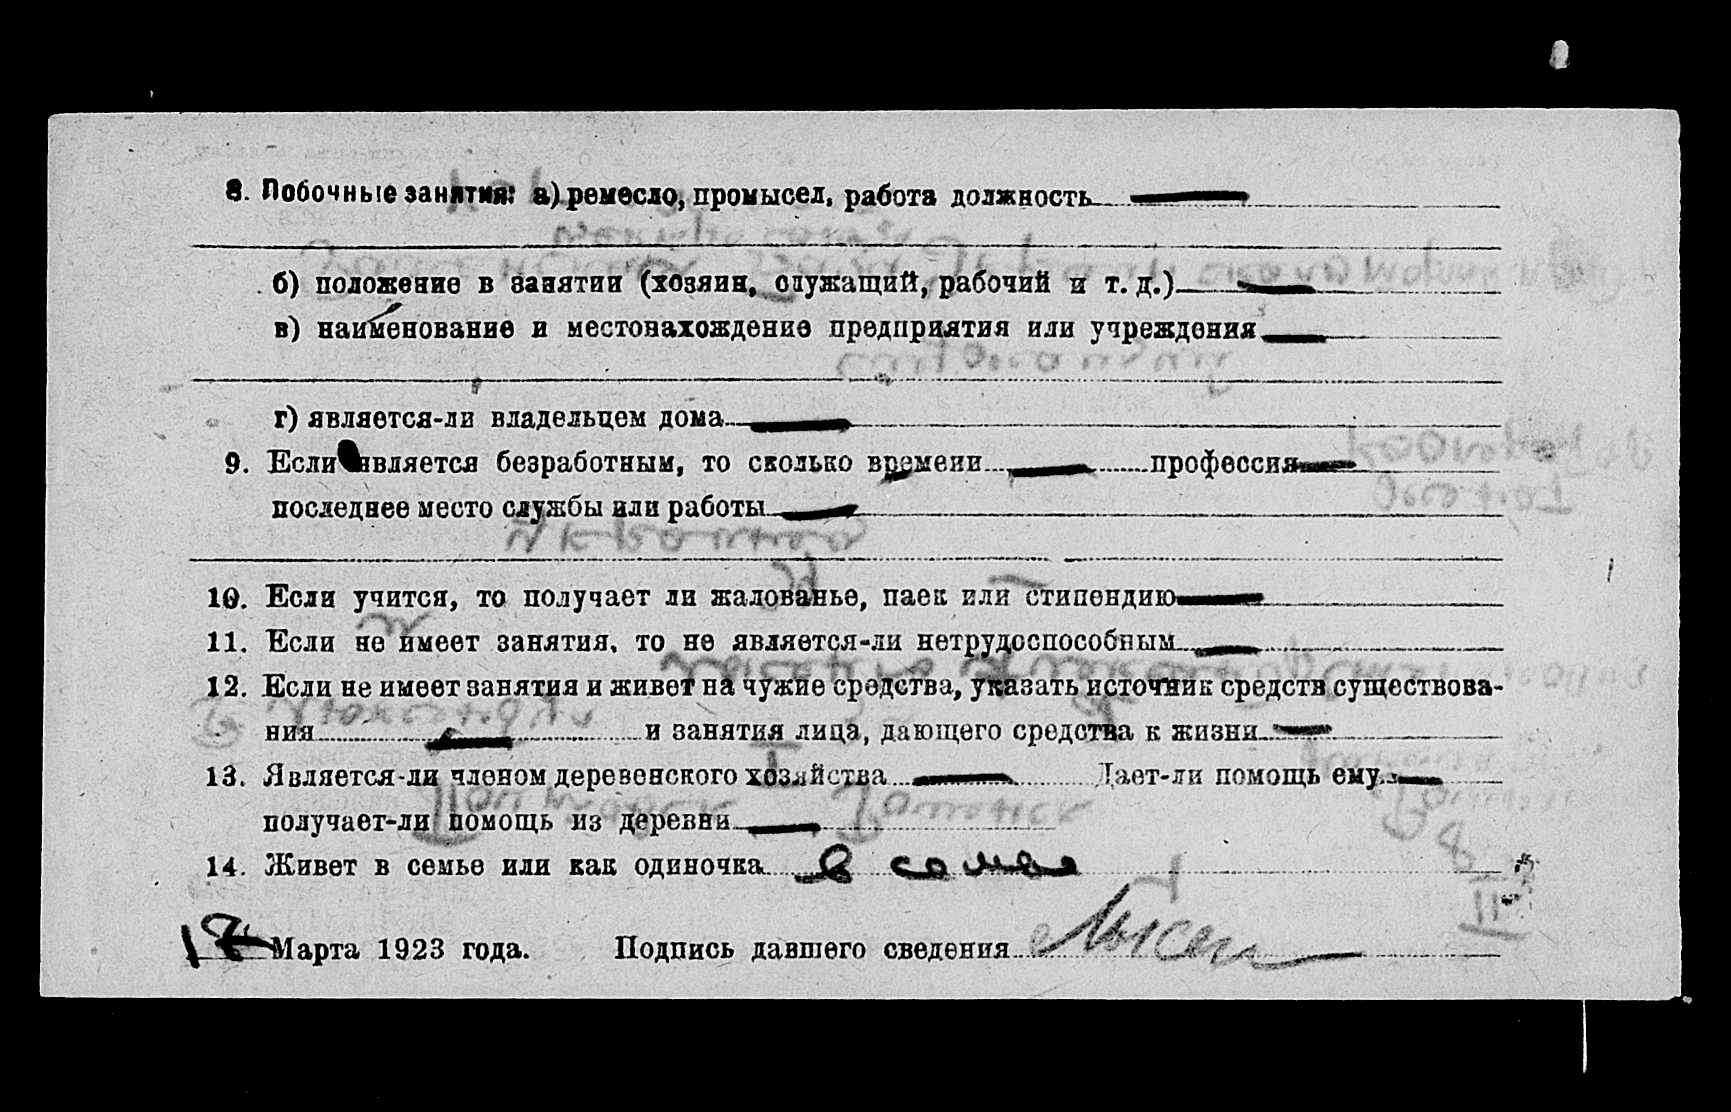 8. Побочные занятия: а) ремесло, промысел, работа должность —
б) положение в занятии (хозяин, служащий, рабочий и т. д.) —
в) наименование и местонахождение предприятия или учреждения —
г) является-ли владельцем дома —
9. Если является безработным, то сколько времени — профессия —
последнее место службы или работы —
10. Если учится, то получает ли жалованье, паек или стипендию —
11. Если не имеет занятия, то не является-ли нетрудоспособным —
12. Если не имеет занятия и живет на чужие средства, указать источник средств существова-
ния — и занятия лица, дающего средства к жизни —
13. Является-ли членом деревенского хозяйства — Дает-ли помощь ему —
получает-ли помощь из деревни —
14. Живет в семье или как одиночка в семье
Марта 1923 года. Подпись давшего сведения